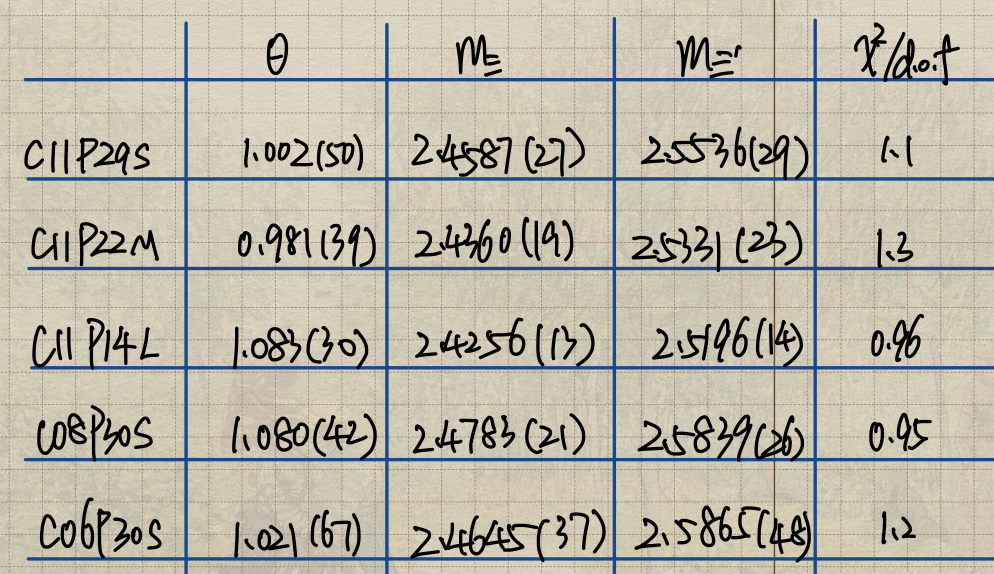 θ m_Ξ m_Ξ' χ²/d.o.f
C11P29S 1.002(50) 2.4587(27) 2.5536(29) 1.1
C11P22M 0.981(39) 2.4360(19) 2.5331(23) 1.3
C11P14L 1.083(30) 2.4256(13) 2.5196(14) 0.96
C08P30S 1.080(42) 2.4783(21) 2.5839(26) 0.95
C06P30S 1.021(67) 2.4645(37) 2.5865(48) 1.2